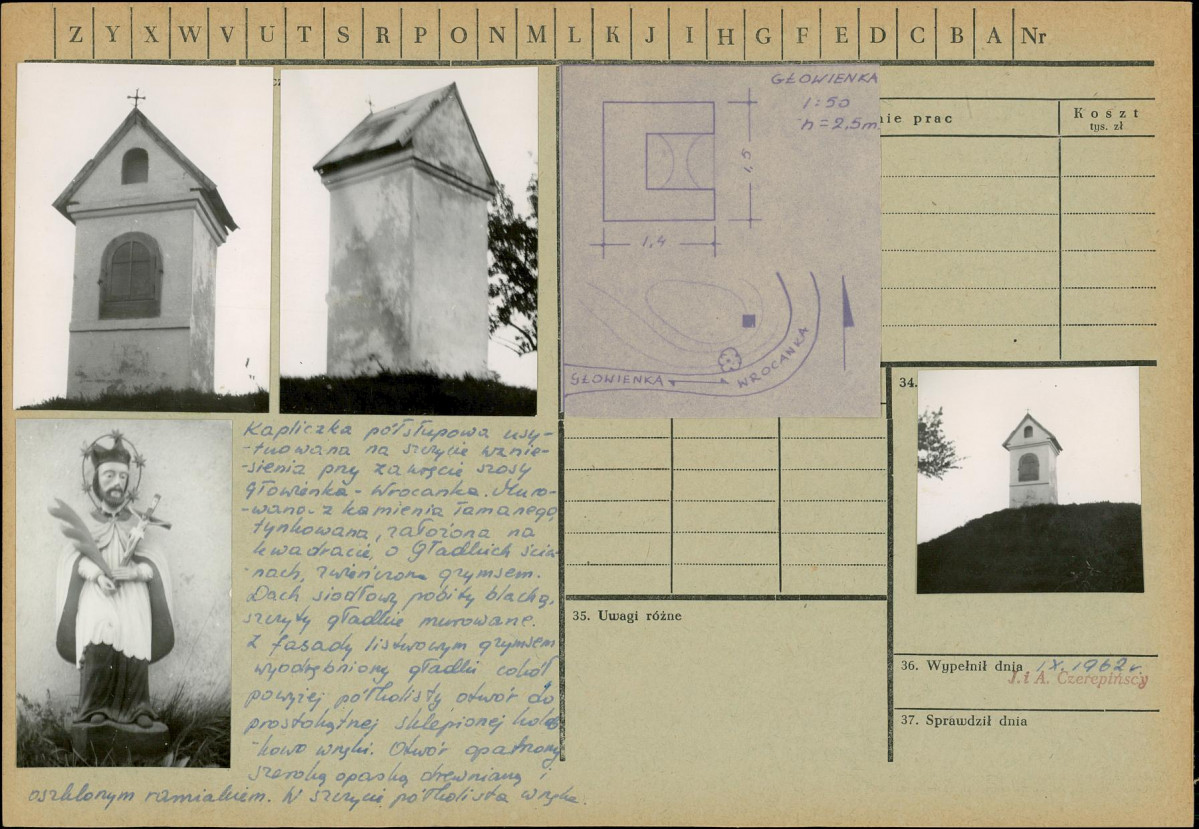 Z Y X W V U T S R P O N M L K J I H G F E D C B A Nr
GŁOWIENKA
1:50
h = 2,5m.
1,5
1,4
GŁOWIENKA
WROCANKA
nie prac
Koszt
tys. zł
34.
Kapliczka półsłupowa usy-
-tuowana na szczycie wznie-
-sienia przy zakręcie szosy
Głowienka - Wrocanka. Muro-
-wana z kamienia łamanego,
tynkowana, założona na
kwadracie, o gładkich ścia-
-nach, zwieńczona gzymsem.
Dach siodłowy pobity blachą,
szczyty gładkie murowane.
Z fasady listwowym gzymsem
wyodrębniony gładki cokół
powyżej półkolisty otwór do
prostokątnej sklepionej
wnęki. Otwór opatrzony
szeroką opaską drewnianą i
oszklonym ramiakiem. W szczycie półkolista wnęka.
35. Uwagi różne
36. Wypełnił dnia IX. 1962 r.
J. i A. Czerepińscy
37. Sprawdził dnia